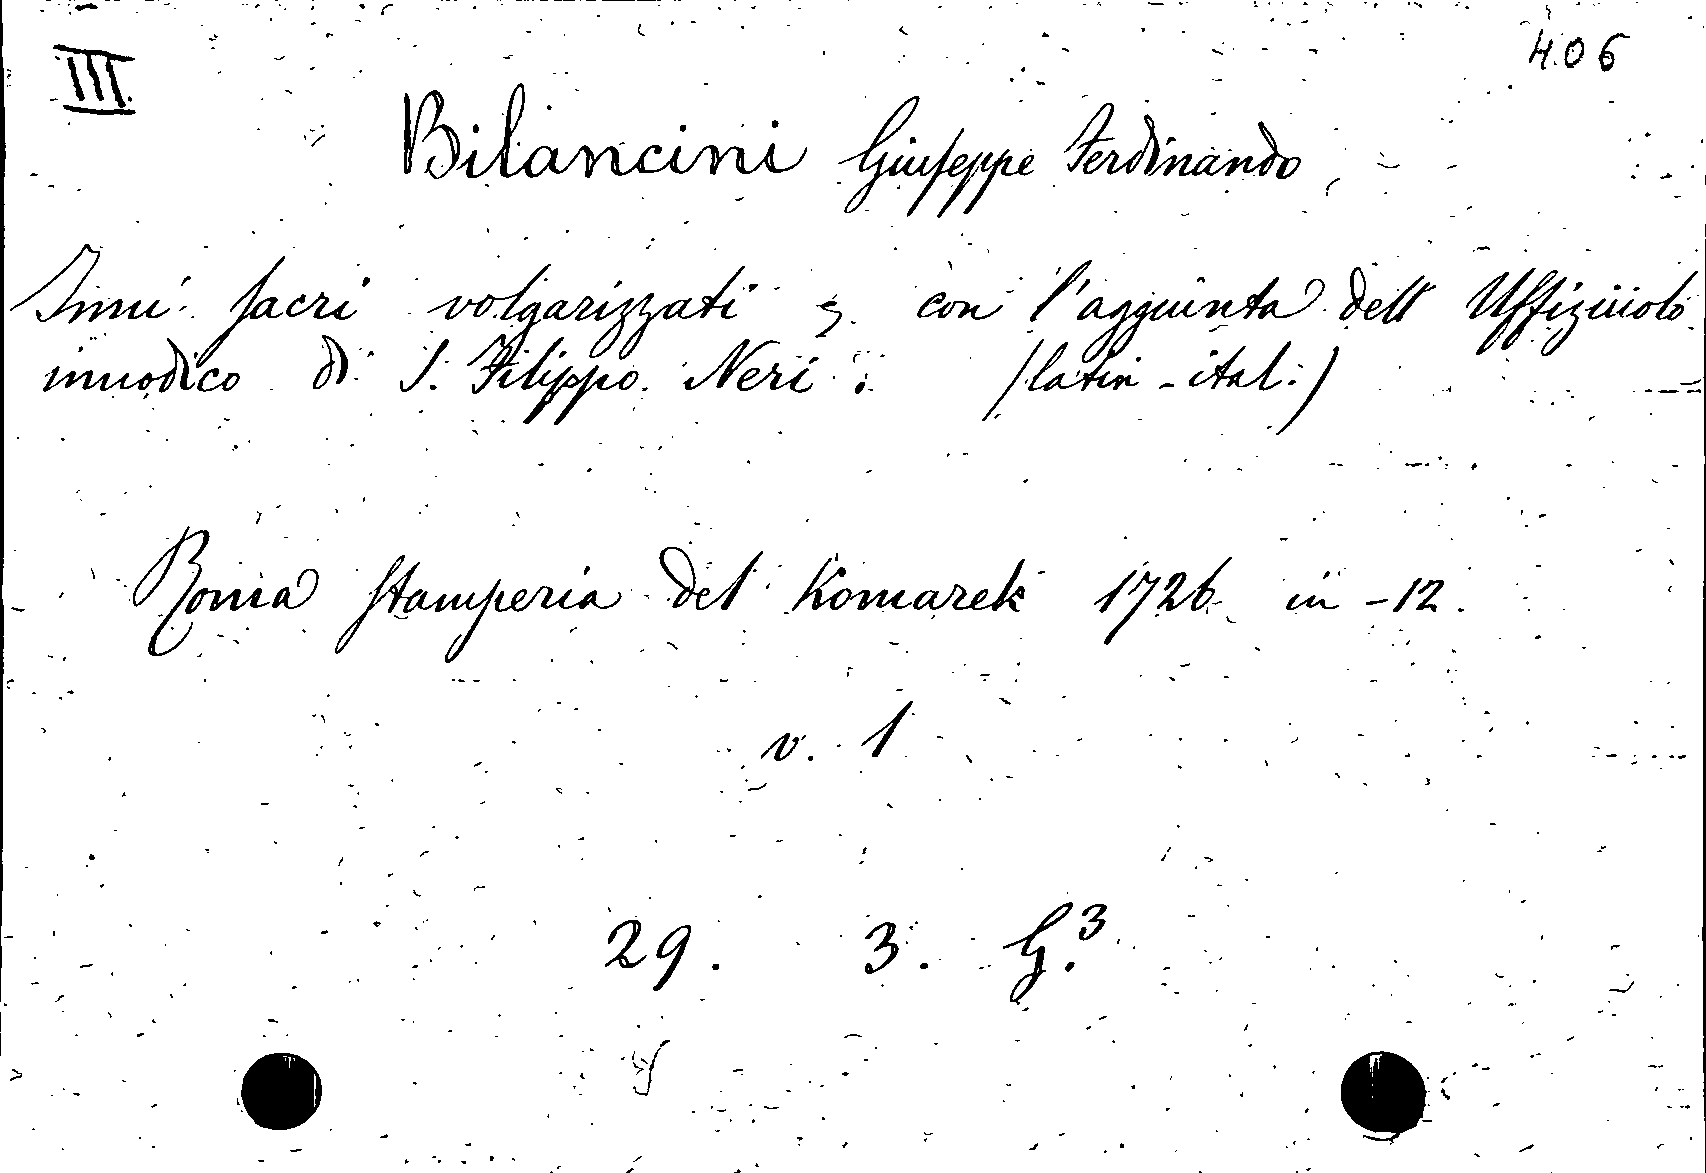 III. 406
Bilancini Giuseppe Ferdinando
Inni sacri volgarizzati con l'aggiunta dell Uffiziuolo
innodico di S. Filippo Neri : (latin-ital.)
Roma Stamperia del Komarek 1726 in-12.
v. 1
29. 3. G.3